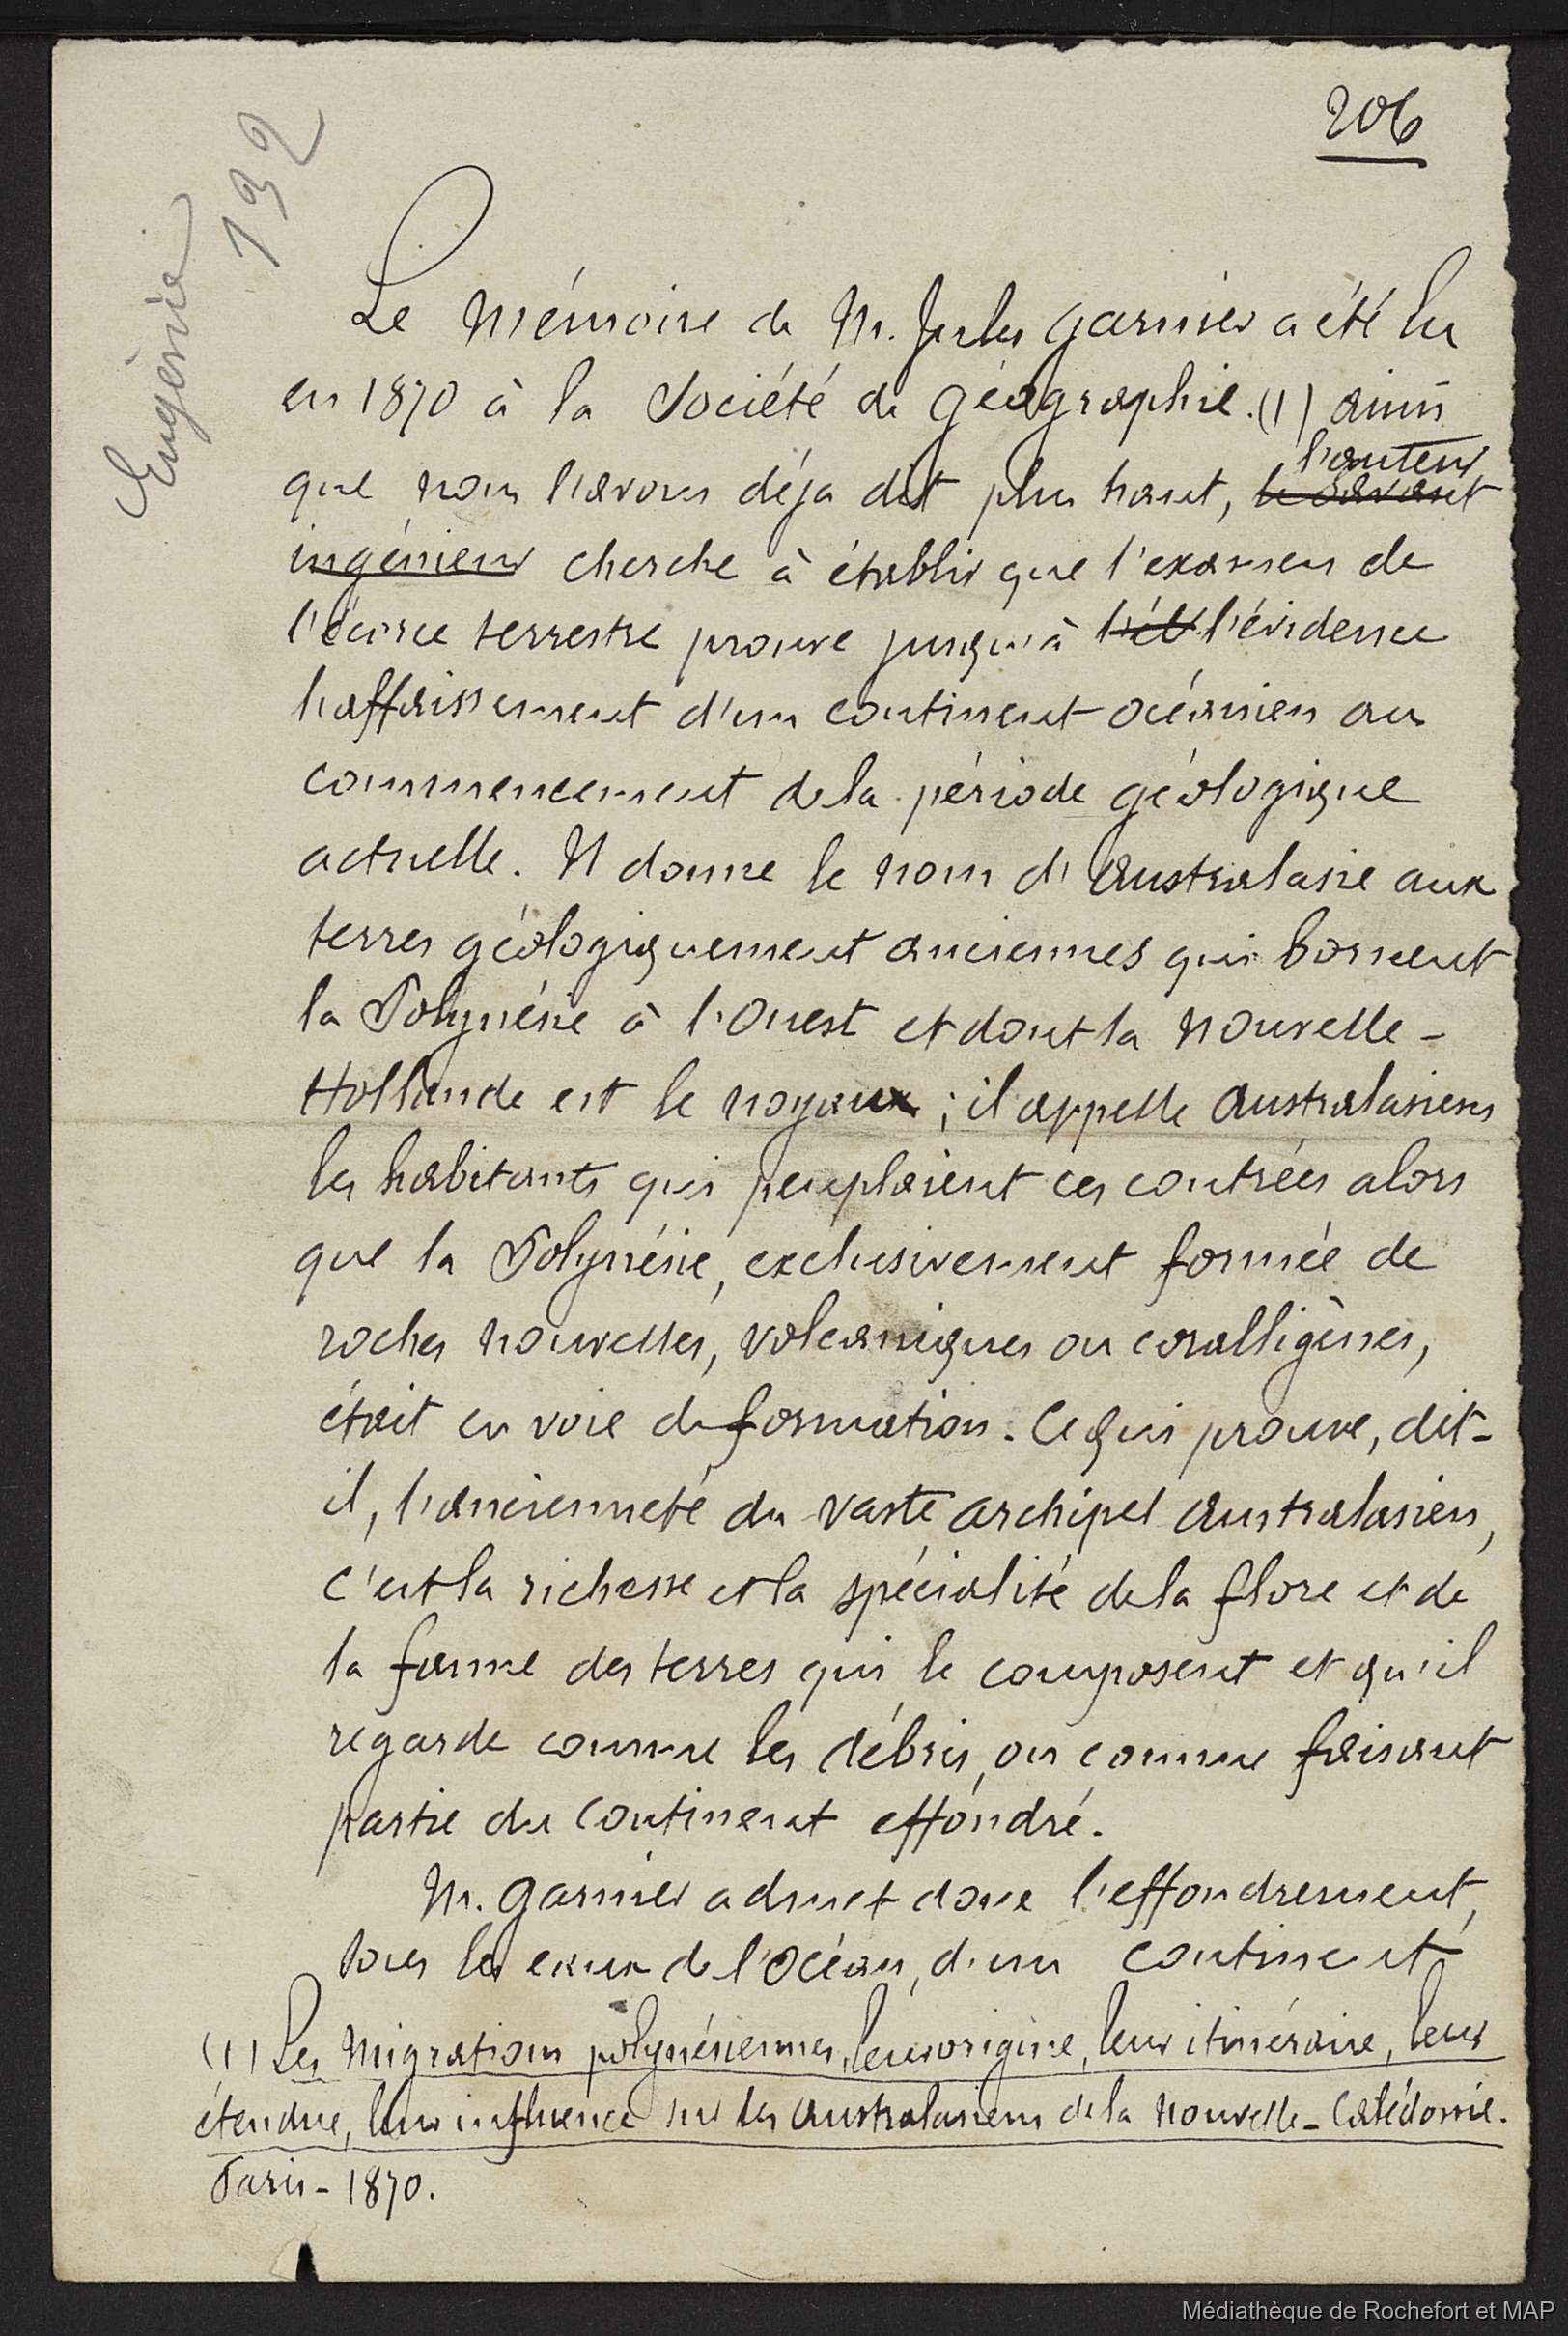 206
Eugénie
132
Le Mémoire de M. Jules Garnier a été lu
en 1870 à la Société de Géographie. (1) ainsi
que nous l'avons déja dit plus haut, le savant l'auteur
ingénieur cherche à établir que l'examen de
l'écorce terrestre prouve jusqu'à l'évidence
l'affaissement d'un continent océanien au
commencement de la période géologique
actuelle. Il donne le nom d'Australasie aux
terres géologiquement anciennes qui bornent
la Polynésie à l'Ouest et dont la Nouvelle-
Hollande est le noyau ; il appelle Australasiens
les habitants qui peuplaient ces contrées alors
que la Polynésie, exclusivement formée de
roches nouvelles, volcaniques ou coralligènes,
était en voie de formation. Ce qui prouve, dit-
il, l'ancienneté du vaste archipel Australasien,
c'est la richesse et la spécialité de la flore et de
la faune des terres qui le composent et qu'il
regarde comme les débris, ou comme faisant
partie du continent effondré.
M. Garnier admet donc l'effondrement,
sous les eaux de l'Océan, d'un continent
(1) Les Migrations polynésiennes, leur origine, leur itinéraire, leur
étendue, leur influence sur les Australasiens de la Nouvelle-Calédonie.
Paris - 1870.
Médiathèque de Rochefort et MAP